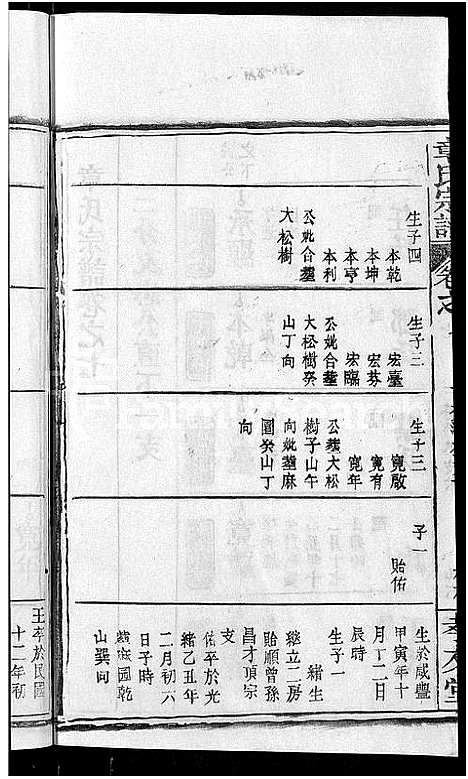 章氏宗譜
卷之
孝友堂
生子四
本乾
本坤
本亨
本利
公妣合塟
大松樹
生子三
宏臺
宏芬
宏臨
公妣合塟
大松樹癸
山丁向
生子三
寛啟
寛有
寛年
公塟大松
樹子山午
向妣塟麻
園癸山丁
向
子一
貽佑
生於咸豐
甲寅年十
月丁二日
辰時
生子一
緒生
継立二房
貽順曾孫
昌才頂宗
支
佑卒於光
緒乙丑年
二月初六
日子時
塟麻園乾
山巽向
王卒於民國
十二年初